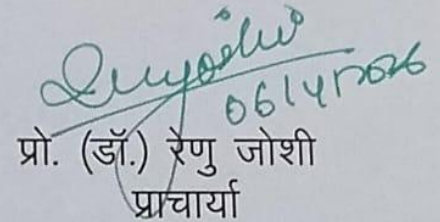 06/4/2026
प्रो. (डॉ.) रेणु जोशी
प्राचार्या